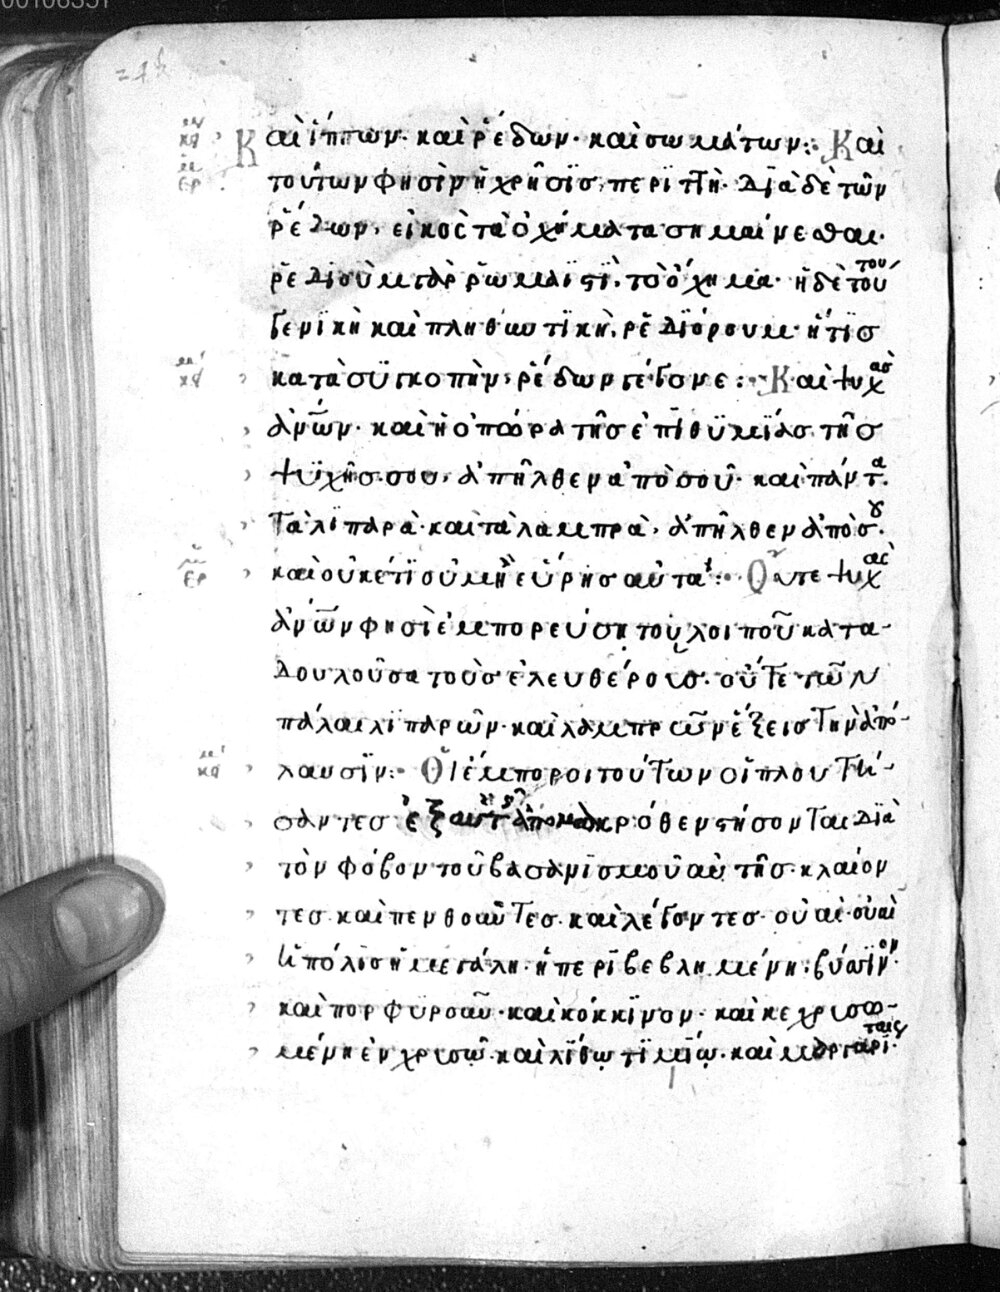 καὶ ἵππων· καὶ ῥέδων· καὶ σωμάτων:· Καὶ
τούτων φησὶν ἡ χρῆσϊς, περιττὴ· Διὰ δὲ τῶν
ῥέδων, εἰκὸς τὰ ὀχήματα σημαίνεσθαι·
ῥέδιουμ γὰρ ῥωμαϊστὶ, τὸ ὄχημα· ἡ δὲ τούτου
γενϊκὴ καὶ πληθϋντϊκὴ, ῥεδϊόρουμ· ἥτϊς
κατὰ σϋγκοπὴν, ῥέδων γέγονε:· Καὶ ψυχὰς
ἀν̅ων· καὶ ἡ ὀπώρα τῆς ἐπϊθϋμϊας τῆς
ψϋχῆς σου, ἀπῆλθεν ἀπὸ σοῦ· καὶ πάντα
τὰ λϊπαρὰ· καὶ τὰ λαμπρὰ, ἀπῆλθεν ἀπὸ σου·
καὶ οὐκέτϊ οὐ μὴ εὑρησ αὐτά:· Οὔτε ψυχὰς
ἀν̅ων φησὶ ἐμπορεύση τοῦ λοιποῦ κατα-
δουλοῦσα τοὺς ἐλευθέρους· οὔτε τῶν
πάλαι λϊπαρῶν· καὶ λαμπρῶν ἕξεις τὴν ἀπό-
λαυσϊν:· Οἱ ἔμποροι τούτων οἱ πλουτή-
σαντες ἐξ αὐτῆς ἀπὸ μακρόθεν στήσονται διὰ
τὸν φόβον τοῦ βασανϊσμοῦ αὐτῆς· κλαίον
τες καὶ πενθοῦντες· καὶ λέγοντες· οὐαὶ· οὐαὶ
ἡ πόλϊς ἡ μεγάλη· ἡ περϊβεβλημένη· βύσσϊνον·
καὶ πορφϋροῦν· καὶ κόκκϊνον· καὶ κεχρυσω-
μένη ἐν χρυσῶ· καὶ λίθω τϊμϊω· καὶ μαργαρίταις·